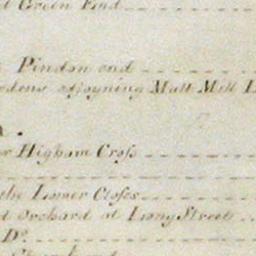 Green End
Pindon end
adjoyning Malt Mill
Higham Cross
the Lower Closes
Orchard at Long Street
Do.